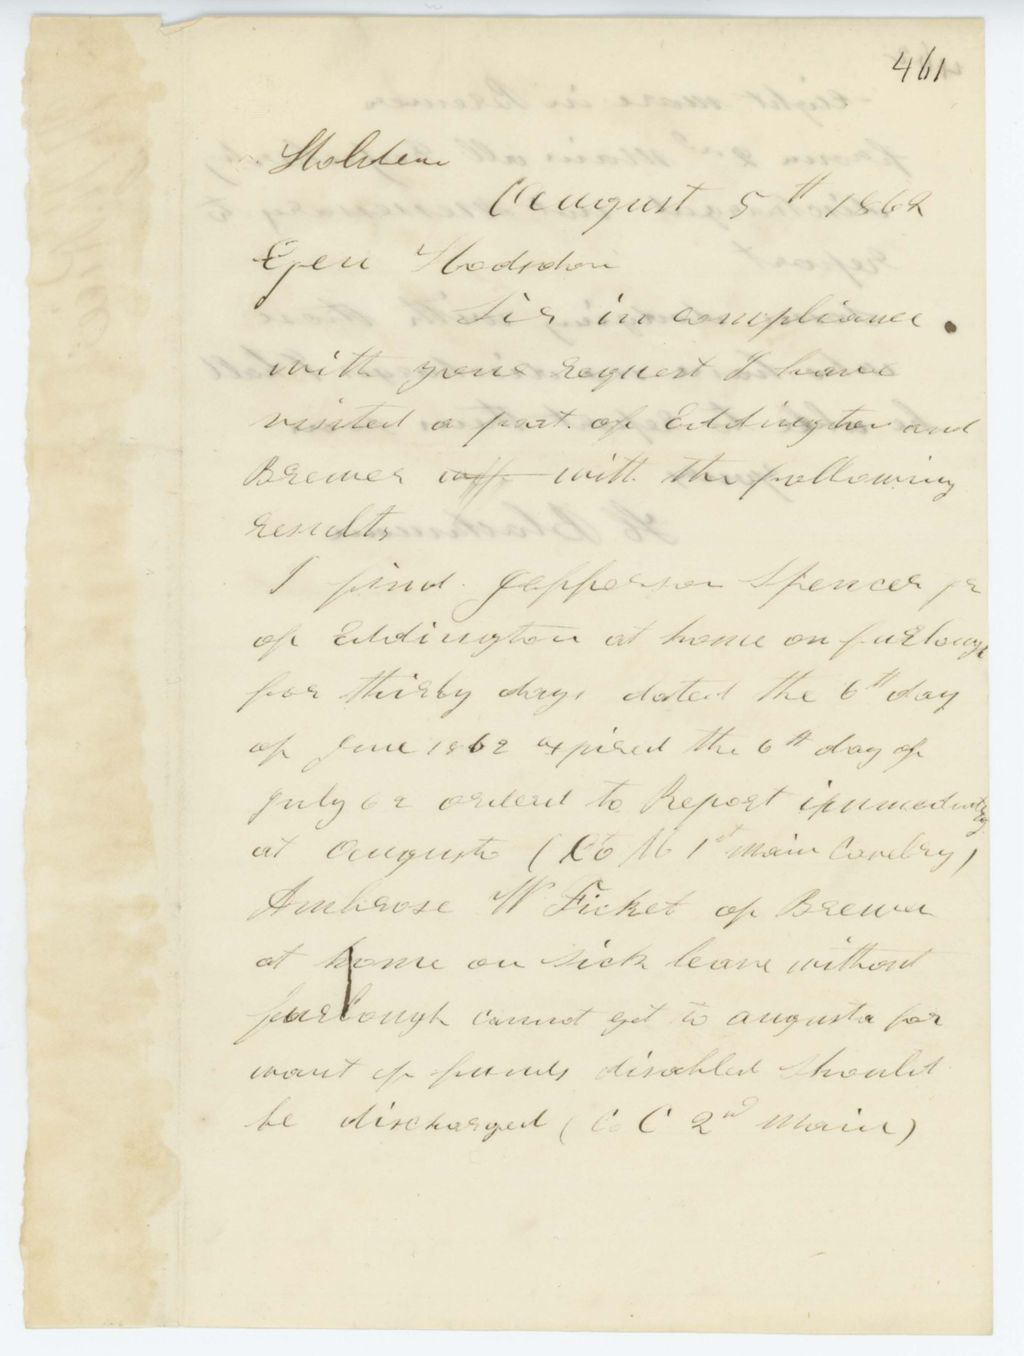 461
Holden
August 5th 1862
Gen Hodsdon
Sir in compliance
with your request I have
visited a part of Eddington and
Brewer with the following
results
I find Jefferson Spencer jr
of Eddington at home on furlough
for thirty days dated the 6th day
of June 1862 expired the 6th day of
July 62 orderd to Report immediately
at Augusta (Co M 1st Main Cavelry)
Ambrose W Ficket of Brewer
at home on sick leave without
furlough cannot get to augusta for
want of funds disabled should
be discharged (Co C 2nd Main)